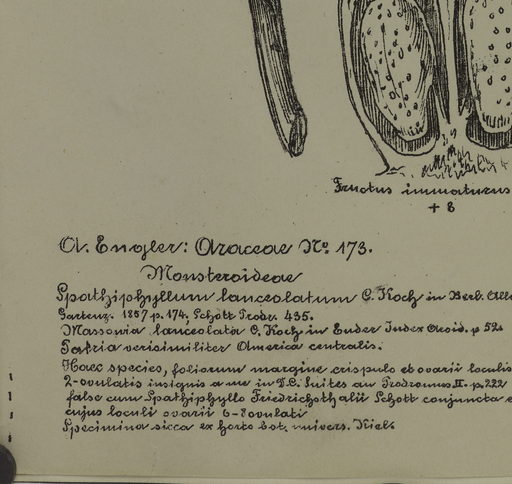 Fructus immaturus
+ 8
A. Engler: Araceae No. 173.
Monsteroideae
Spathiphyllum lanceolatum C. Koch in Berl. Allg
Gartenz. 1857 p. 174, Schott Prodr. 435.
Massonia lanceolata C. Koch in Ender Index Aroid. p 52.
Patria verisimiliter America centralis.
Haec species, foliorum margine crispulo et ovarii loculis
2-ovulatis insignis a me in D.C. Suites au Prodromus II. p. 222
falso cum Spathiphyllo Friedrichsthalii Schott conjuncta e
cujus loculi ovarii 6-8 ovulati
Specimina sicca ex horto bot. univers. Kiel